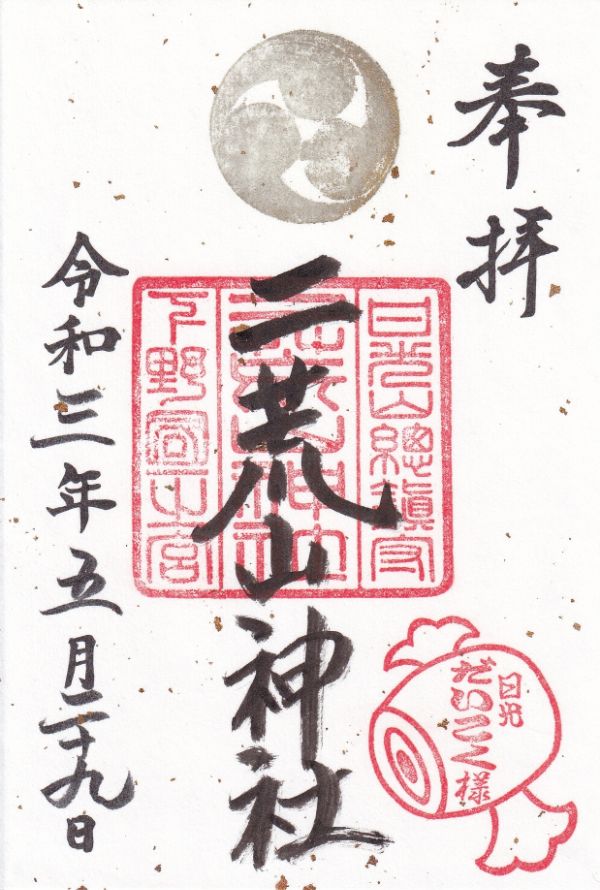 奉拝
日光山總鎮守
二荒山神社
二荒山神社
下野國一宮
令和三年五月二十九日
日光
だいこく様